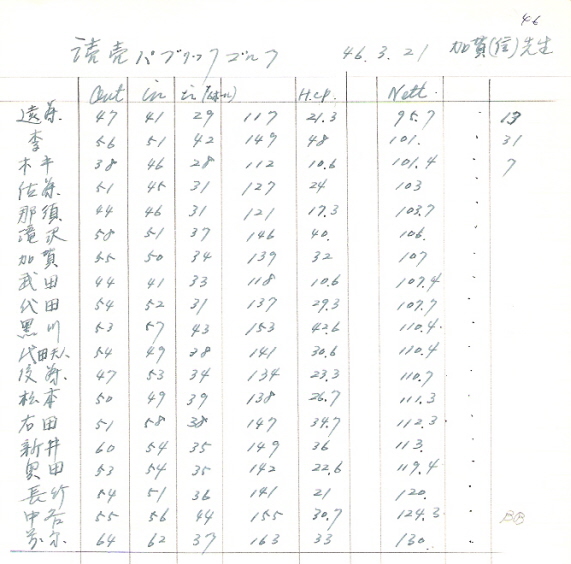 46
読売パブリックゴルフ 46.3.21 加賀(信)先生
Out in in H.c.p. Nett.
遠藤 47 41 29 117 21.3 95.7 13
李 56 51 42 149 48 101. 31
木平 38 46 28 112 10.6 101.4 7
佐藤 51 45 31 127 24 103
那須 44 46 31 121 17.3 103.7
滝沢 58 51 37 146 40. 106.
加賀 55 50 34 139 32 107
武田 44 41 33 118 10.6 107.4
代田 54 52 31 137 29.3 107.7
黒川 53 57 43 153 42.6 110.4
代田夫人 54 49 38 141 30.6 110.4
後藤 47 53 34 134 23.3 110.7
松本 50 49 39 138 26.7 111.3
右田 51 58 38 147 34.7 112.3
新井 60 54 35 149 36 113.
奥田 53 54 35 142 22.6 119.4
長竹 54 51 36 141 21 120.
中谷 55 56 44 155 30.7 124.3 BB
64 62 37 163 33 130.